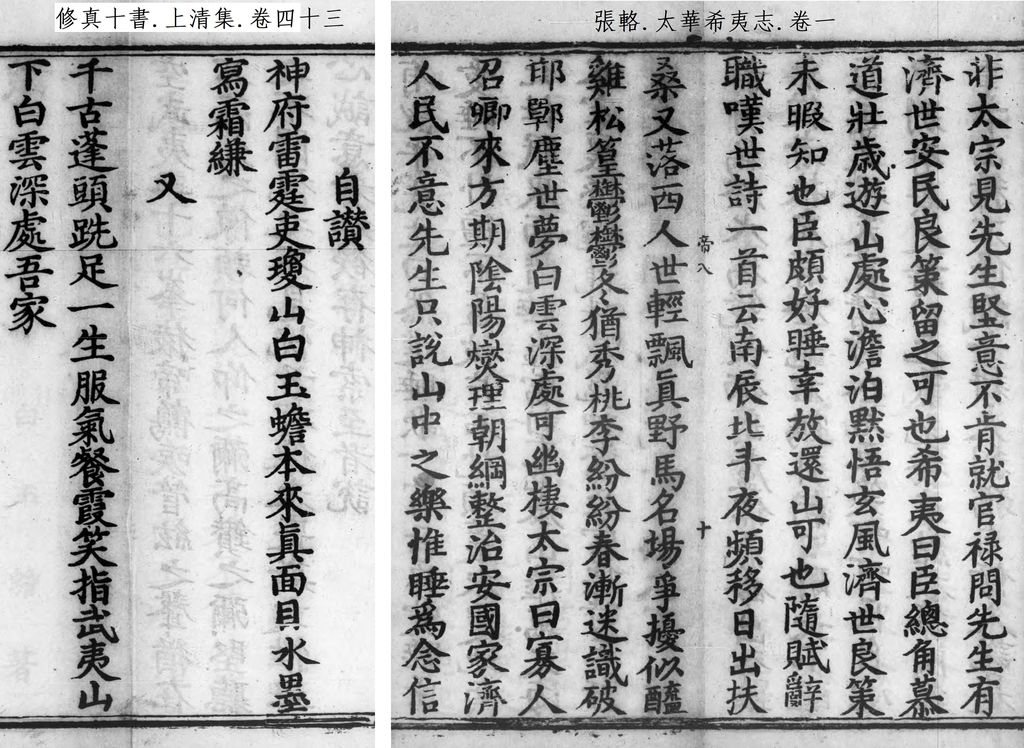 修真十書．上清集．卷四十三
自讚
神府雷霆吏瓊山白玉蟾本來眞面貝水墨
寫霜縑
又
千古蓬頭跣足一生服氣餐霞笑指武夷山
下白雲深處吾家
張輅．太華希夷志．卷一
非太宗見先生堅意不肯就官禄問先生有
濟世安民良策留之可也希夷曰臣總角慕
道壯歲遊山處心澹泊黙悟玄風濟世良策
未暇知也臣頗好睡幸放還山可也隨賦辭
職嘆世詩一首云南辰北斗夜頻移日出扶
桒又落西人世輕飄眞野馬名場爭擾似醯
帝八 十
雞松篁鬱鬱冬猶秀桃李紛紛春漸迷識破
邯鄲塵世夢白雲深處可幽棲太宗曰寡人
召卿來方期陰陽燮理朝綱整治安國家濟
人民不意先生只說山中之樂惟睡爲念信